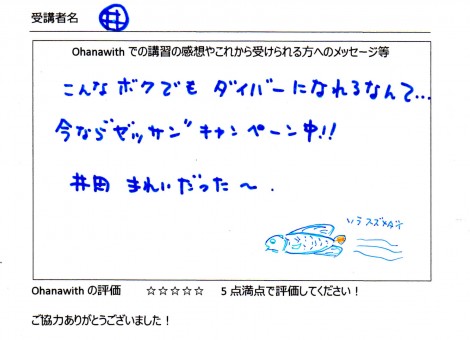 受講者名 井
Ohanawith での講習の感想やこれから受けられる方へのメッセージ等
こんなボクでもダイバーになれるなんて…
今なら"ゼッサン"キャンペーン中!!
井田 きれいだった〜.
ソラスズメダイ
Ohanawith の評価 ☆☆☆☆☆ 5点満点で評価してください！
ご協力ありがとうございました！